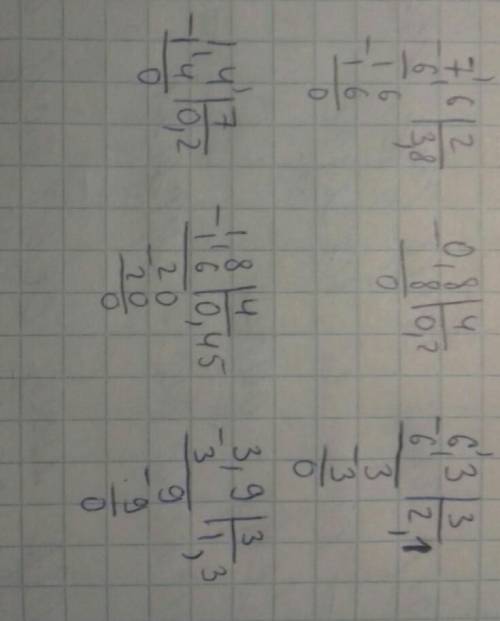 7,6 | 2
-6 | 3,8
-16
16
0
0,8 | 4
-8 | 0,2
0
6,3 | 3
-6 | 2,1
-3
3
0
-1,4 | 7
1,4 | 0,2
0
-1,8 | 4
1,6 | 0,45
-20
20
0
3,9 | 3
-3 | 1,3
-9
9
0